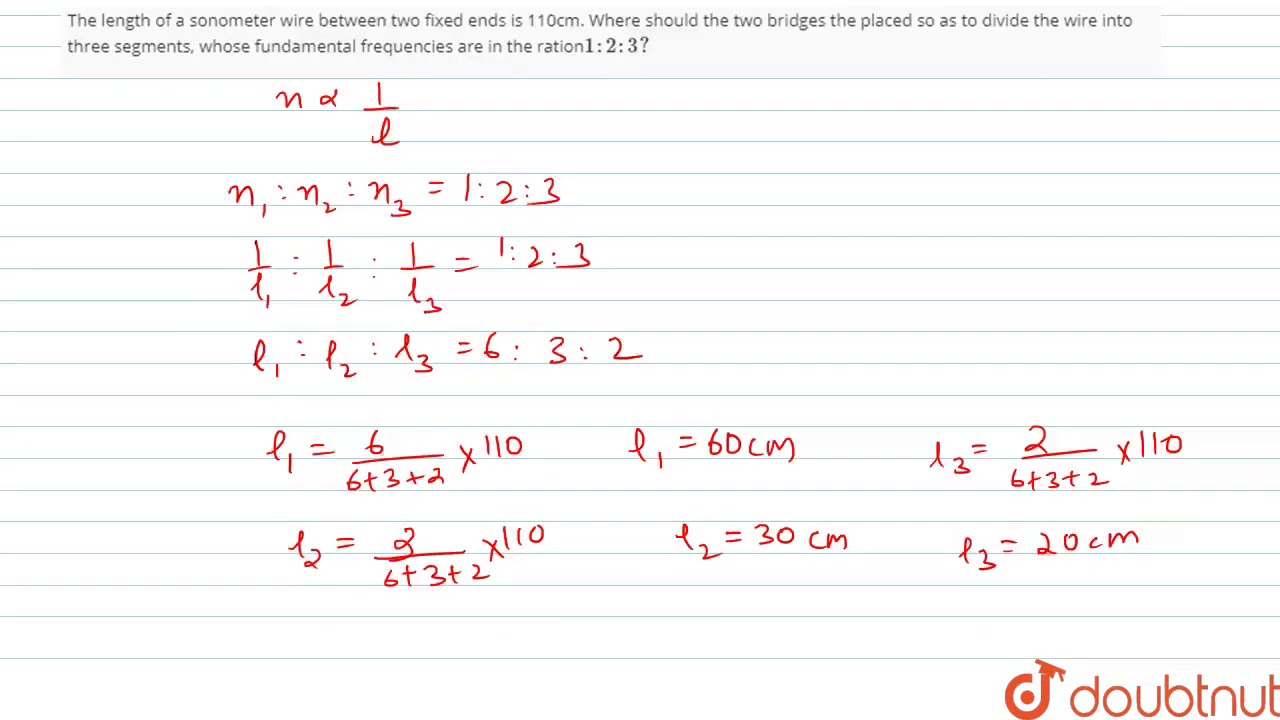 The length of a sonometer wire between two fixed ends is 110cm. Where should the two bridges the placed so as to divide the wire into
three segments, whose fundamental frequencies are in the ration1 : 2 : 3?
n ∝ 1/l
n₁ : n₂ : n₃ = 1 : 2 : 3
1/l₁ : 1/l₂ : 1/l₃ = 1 : 2 : 3
l₁ : l₂ : l₃ = 6 : 3 : 2
l₁ = 6/(6+3+2) × 110 l₁ = 60cm l₃ = 2/(6+3+2) × 110
l₂ = 2/(6+3+2) × 110 l₂ = 30 cm l₃ = 20cm
doubtnut